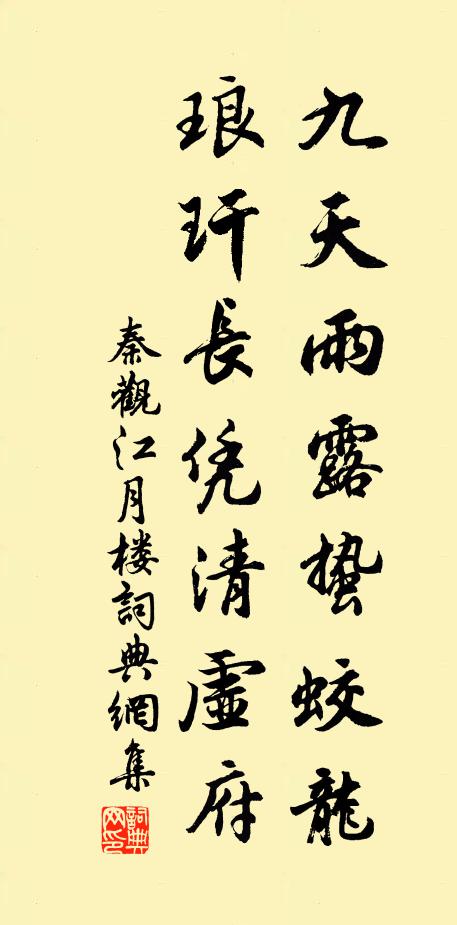 九天雨露蛰蛟龍
琅玕長凭清虛府
秦觀江月楼詞典網集
詞典网印